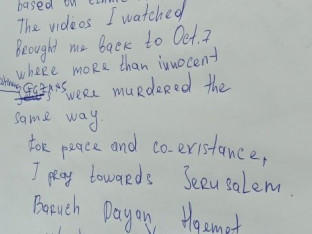 based on
The videos I watched
Brought me back to Oct.7
where more than innocent
were murdered the
same way.
For peace and co-existance,
I pray towards Jerusalem.
Baruch Dayan Haemet